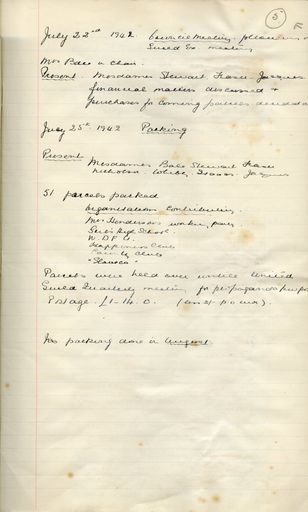 5
July 22nd 1942 Council Meeting following
Guild Ex meeting
Mrs Bale in Chair.
Present. Mesdames Stewart Fraser Jacques
financial matters discussed &
purchases for coming parcels decided
July 25th 1942 Packing
Present Mesdames Bale Stewart Fraser
Nicholson Isaacs Jacques
51 parcels packed
Organisations Contributing.
Mrs Henderson's working party
Girls High School
W.D.F.U.
Happiness Club
Family Club
Parcels were held over until United
Guild Quarterly meeting for propaganda
Postage £1-14.0
No packing done in August